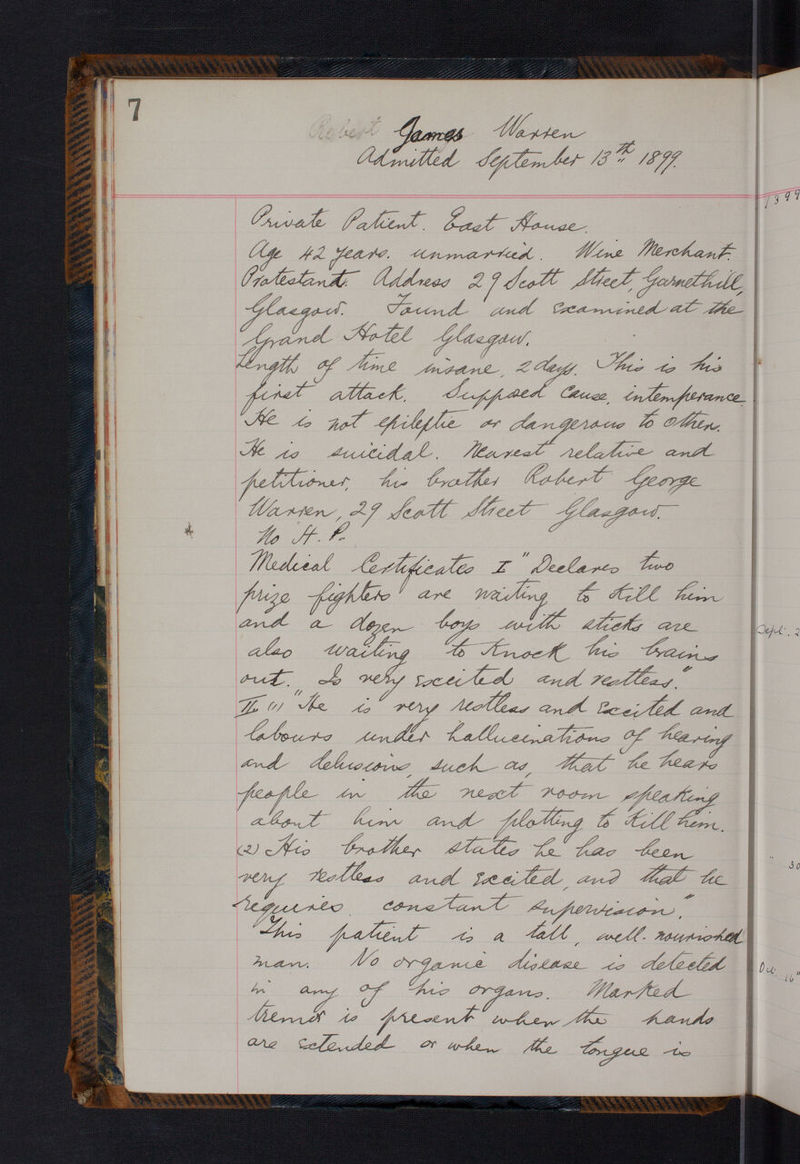 7
Robert James Warren
Admitted September 13th 1899.
1899
Private Patient. East House.
Age 42 years. unmarried. Wine Merchant.
Protestant. Address 29 Scott Street, Garnethill,
Glasgow. Found and examined at the
Grand Hotel Glasgow.
Length of time insane, 2 days. This is his
first attack. Supposed cause, intemperance.
He is not epileptic or dangerous to others.
He is suicidal. Nearest relative and
petitioner, his brother Robert George
Warren, 29 Scott Street Glasgow.
No H. P.
Medical Certificates I "Declares two
prize fighters are waiting to kill him
and a dozen boys with sticks are
also waiting to knock his brains
out. Is very excited and restless."
II. (1) "He is very restless and excited and
labours under hallucinations of hearing
and delusions, such as, that he hears
people in the next room speaking
about him and plotting to kill him.
(2) His brother states he has been
very restless and excited, and that he
requires constant supervision."
This patient is a tall, well-nourished
man. No organic disease is detected
in any of his organs. Marked
tremor is present when the hands
are extended or when the tongue is
Sept. 2
" 30
16"